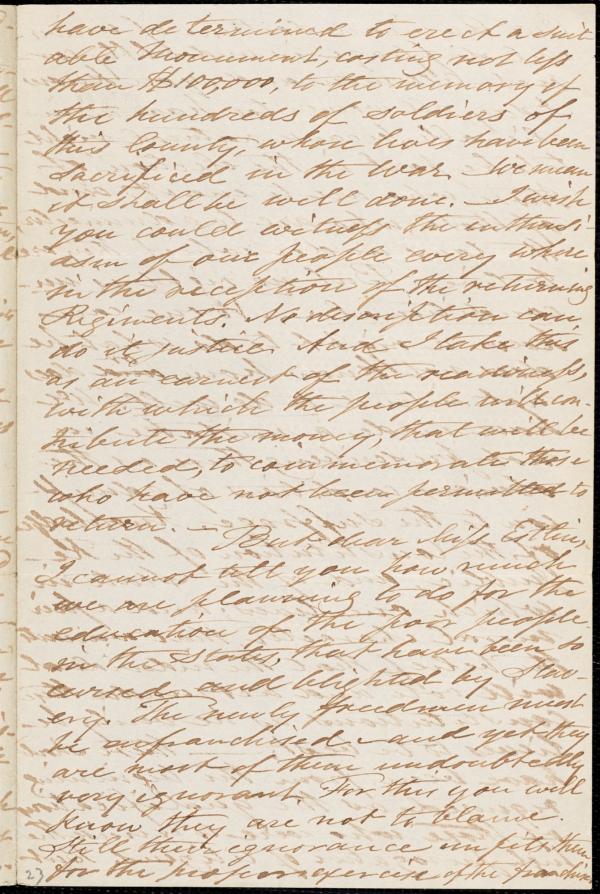 have determined to erect a suit
able Monument, costing not less
than $100,000, to the memory of
the hundreds of soldiers of
this County, whose lives have been
sacrificed in the War. We mean
it shall be well done. — I wish
you could witness the enthusi-
asm of our people every where
in the reception of the returning
Regiments. No description can
do it justice. And I take this
as an earnest of the readiness,
with which the people will con-
tribute the money, that will be
needed, to commemorate those
who have not been permitted to
return. — But dear Miss Estlin,
I cannot tell you how much
we are planning to do for the
education of the poor people
in the States, that have been so
cursed and blighted by Slav-
ery. The newly freedmen must
be enfranchised — and yet they
are most of them undoubtedly
very ignorant. For this you will
know they are not to blame.
Still their ignorance unfits them
for the proper exercise of the franchise
23